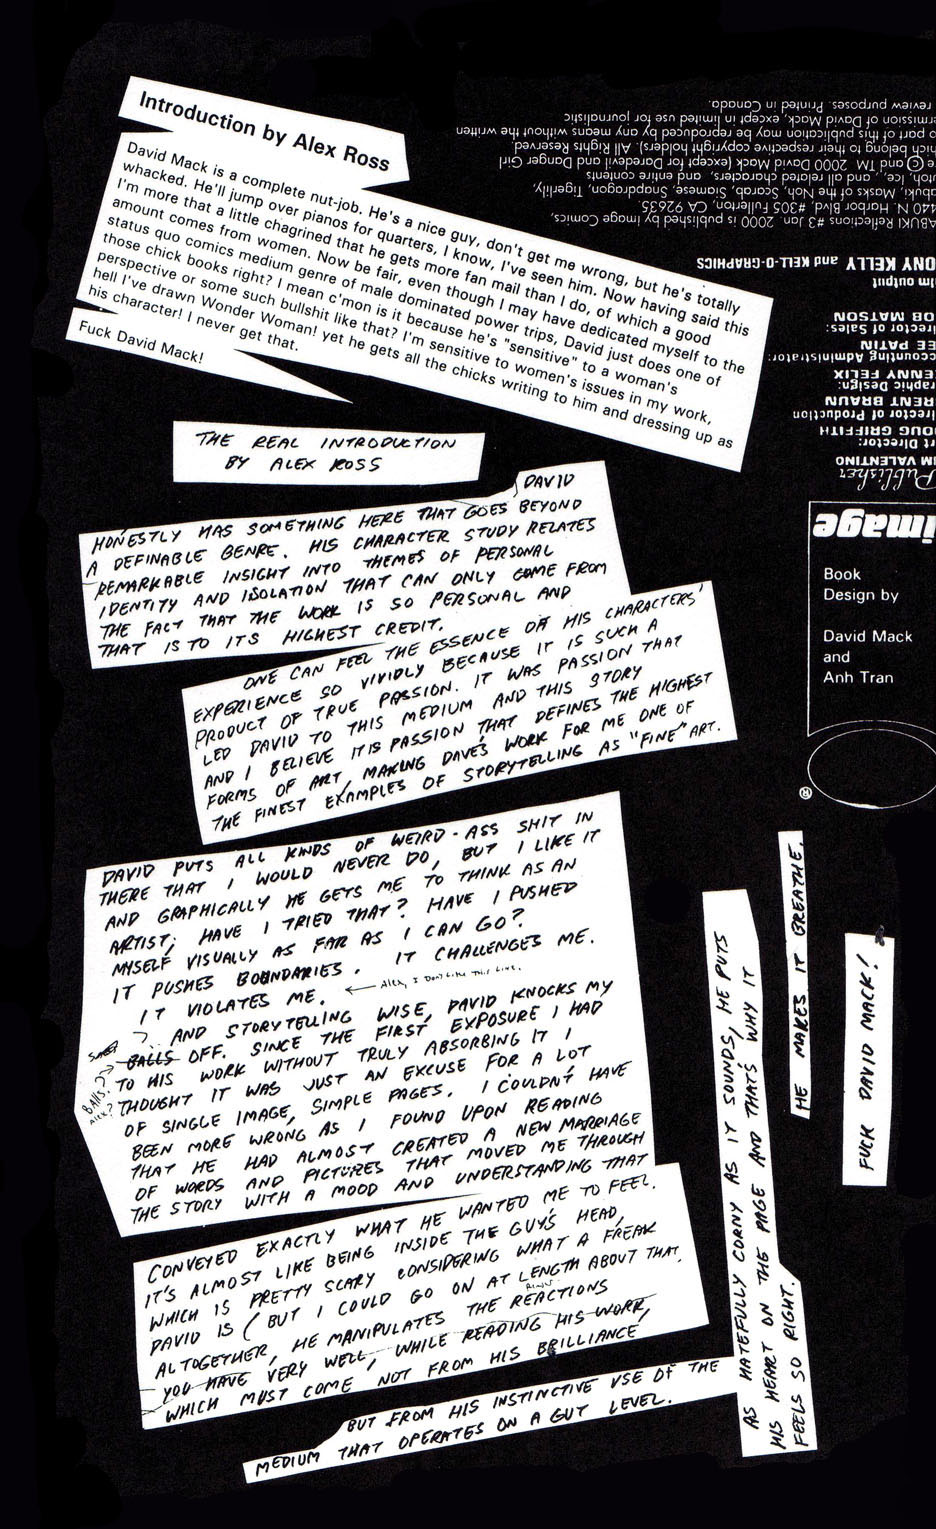 Introduction by Alex Ross
David Mack is a complete nut-job. He's a nice guy, don't get me wrong, but he's totally
whacked. He'll jump over pianos for quarters, I know, I've seen him. Now having said this
I'm more that a little chagrined that he gets more fan mail than I do, of which a good
amount comes from women. Now be fair, even though I may have dedicated myself to the
status quo comics medium genre of male dominated power trips, David just does one of
those chick books right? I mean c'mon is it because he's "sensitive" to a woman's
perspective or some such bullshit like that? I'm sensitive to women's issues in my work,
hell I've drawn Wonder Woman! yet he gets all the chicks writing to him and dressing up as
his character! I never get that.
Fuck David Mack!
THE REAL INTRODUCTION
BY ALEX ROSS
DAVID
HONESTLY HAS SOMETHING HERE THAT GOES BEYOND
A DEFINABLE GENRE. HIS CHARACTER STUDY RELATES
REMARKABLE INSIGHT INTO THEMES OF PERSONAL
IDENTITY AND ISOLATION THAT CAN ONLY COME FROM
THE FACT THAT THE WORK IS SO PERSONAL AND
THAT IS TO ITS HIGHEST CREDIT.
ONE CAN FEEL THE ESSENCE OF HIS CHARACTERS'
EXPERIENCE SO VIVIDLY BECAUSE IT IS SUCH A
PRODUCT OF TRUE PASSION. IT WAS PASSION THAT
LED DAVID TO THIS MEDIUM AND THIS STORY
AND I BELIEVE IT IS PASSION THAT DEFINES THE HIGHEST
FORMS OF ART, MAKING DAVE'S WORK FOR ME ONE OF
THE FINEST EXAMPLES OF STORYTELLING AS "FINE" ART.
DAVID PUTS ALL KINDS OF WEIRD-ASS SHIT IN
THERE THAT I WOULD NEVER DO, BUT I LIKE IT
AND GRAPHICALLY HE GETS ME TO THINK AS AN
ARTIST; HAVE I TRIED THAT? HAVE I PUSHED
MYSELF VISUALLY AS FAR AS I CAN GO?
IT PUSHES BOUNDARIES. IT CHALLENGES ME.
IT VIOLATES ME. ← Alex, I Don't Like This Line.
AND STORYTELLING WISE, DAVID KNOCKS MY
BALLS OFF. SINCE THE FIRST EXPOSURE I HAD
Balls? Alex?
TO HIS WORK WITHOUT TRULY ABSORBING IT I
THOUGHT IT WAS JUST AN EXCUSE FOR A LOT
OF SINGLE IMAGE, SIMPLE PAGES. I COULDN'T HAVE
BEEN MORE WRONG AS I FOUND UPON READING
THAT HE HAD ALMOST CREATED A NEW MARRIAGE
OF WORDS AND PICTURES THAT MOVED ME THROUGH
THE STORY WITH A MOOD AND UNDERSTANDING THAT
CONVEYED EXACTLY WHAT HE WANTED ME TO FEEL.
IT'S ALMOST LIKE BEING INSIDE THE GUY'S HEAD,
WHICH IS PRETTY SCARY CONSIDERING WHAT A FREAK
DAVID IS (BUT I COULD GO ON AT LENGTH ABOUT THAT.
ALTOGETHER, HE MANIPULATES THE REACTIONS
YOU HAVE VERY WELL, WHILE READING HIS WORK,
WHICH MUST COME NOT FROM HIS BRILLIANCE,
BUT FROM HIS INSTINCTIVE USE OF THE
MEDIUM THAT OPERATES ON A GUT LEVEL.
AS HATEFULLY CORNY AS IT SOUNDS, HE PUTS
HIS HEART ON THE PAGE AND THAT'S WHY IT
FEELS SO RIGHT.
HE MAKES IT BREATHE.
FUCK DAVID MACK!
image
Book
Design by
David Mack
and
Anh Tran
®
Publisher
IM VALENTINO
rt Director:
OUG GRIFFITH
irector of Production
RENT BRAUN
raphic Design:
ENNY FELIX
ccounting Administrator:
EE PATIN
irector of Sales:
OB MATSON
lm output
ONY KELLY and KELL-O-GRAPHICS
ABUKI Reflections #3 Jan. 2000 is published by Image Comics,
440 N. Harbor Blvd, #305 Fullerton, CA 92635.
abuki, Masks of the Noh, Scorab, Siamese, Snapdragon, Tigerlily,
utoh, Ice, , and all related characters, and entire contents
re © and TM 2000 David Mack (except for Daredevil and Danger Girl
hich belong to their respective copyright holders). All Rights Reserved.
o part of this publication may be reproduced by any means without the written
ermission of David Mack, except in limited use for journalistic
review purposes. Printed in Canada.